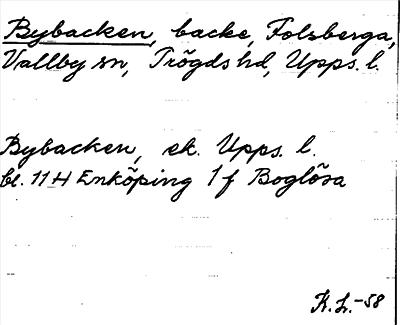 Bybacken, backe, Folsberga,
Vallby sn, Trögds hd, Upps. l.
Bybacken, ek. Upps. l.
bl. 11 H Enköping 1 f Boglösa
K. L. -58